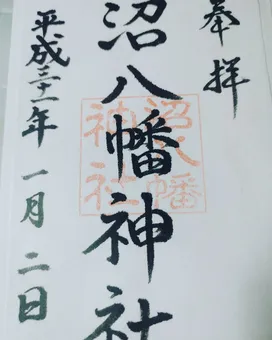 奉拝
沼八幡神社
平成三十一年一月二日
沼八幡
神社